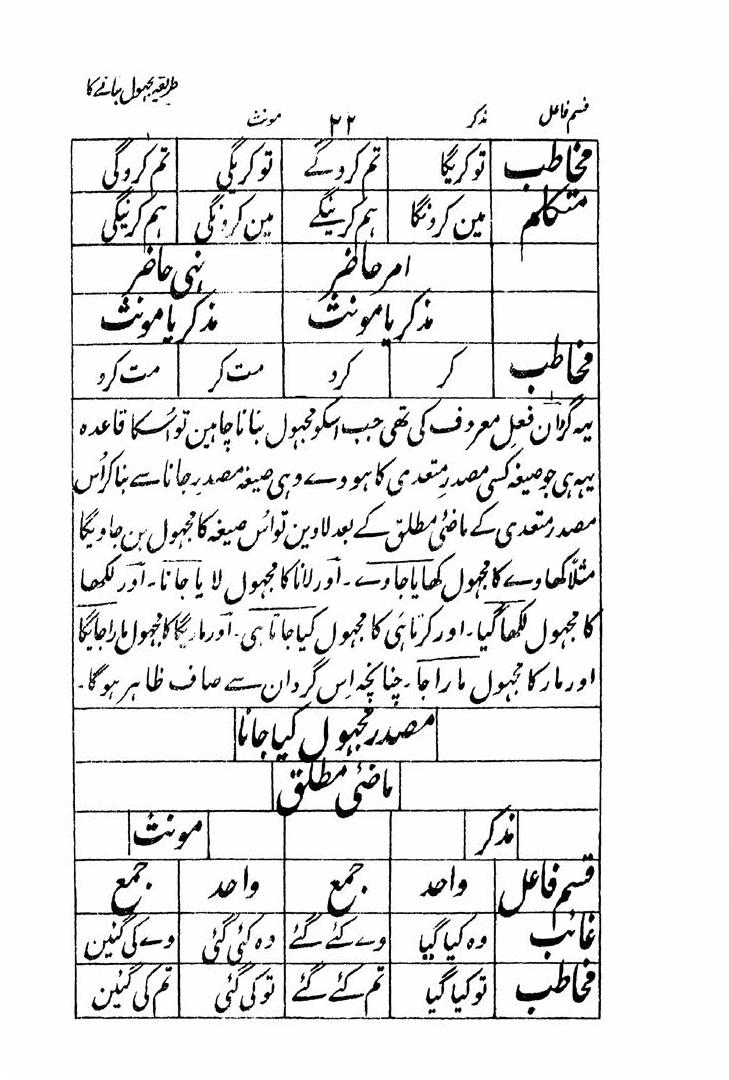 طریقہ مجہول بنانے کا
قسم فاعل مذکر ۲۲ مونث
مخاطب توکریگا تم کروگے توکریگی تم کروگی
متکلم مین کرونگا ہم کرینگے مین کرونگی ہم کرینگی
امر حاضر نہی حاضر
مذکر یا مونث مذکر یا مونث
مخاطب کر کرو مت کر مت کرو
یہہ گردان فعل معروف کی تھی جب اسکو مجہول بنانا چاہین تو اُسکا قاعدہ
یہہ ہی جو صیغہ کسی مصدرِ متعدی کا ہووے وہی صیغہ مصدرِ جانا سے بناکر اُس
مصدرِ متعدی کے ماضیٔ مطلق کے بعد لاوین تو اُس صیغہ کا مجہول بن جاویگا
مثلاً کھاوے کا مجہول کھایا جاوے۔ اور لانا کا مجہول لایا جانا۔ اور لکھا
کا مجہول لکھا گیا۔ اور کرتا ہی کا مجہول کیا جاتا ہی۔ اور ماریگا کا مجہول مارا جائیگا
اور مار کا مجہول مارا جا۔ چنانچہ اِس گردان سے صاف ظاہر ہوگا۔
مصدر مجہول کیا جانا
ماضیٔ مطلق
مذکر مونث
قسم فاعل واحد جمع واحد جمع
غائب وہ کیا گیا وے کئے گئے وہ کئی گئی وے کی گئین
مخاطب تو کیا گیا تم کئے گئے تو کی گئی تم کی گئین